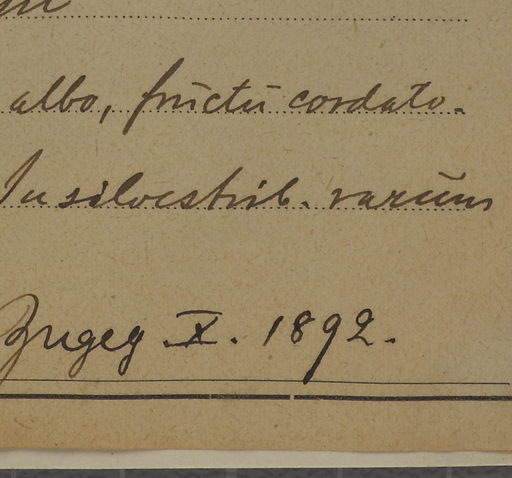 albo, fructu cordato.
In silvestrib. rarum
Brugeg X. 1892.